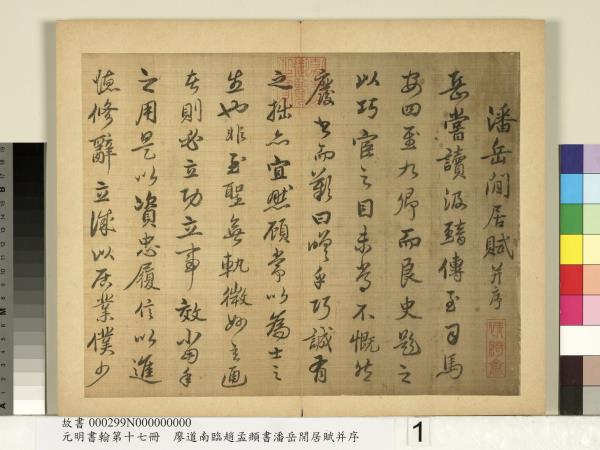 潘岳閒居賦并序
岳嘗讀汲黯傳至司馬
安四至九卿而良史題之
以巧宦之目未嘗不慨然
廢書而歎曰嗟乎巧誠有
之拙亦宜然顧常以為士之
生也非至聖無軌微妙玄通
者則必立功立事效當年
之用是以資忠履信以進
德修辭立誠以居業僕少
故書 000299N000000000
元明書翰第十七冊 廖道南臨趙孟頫書潘岳閒居賦并序
1